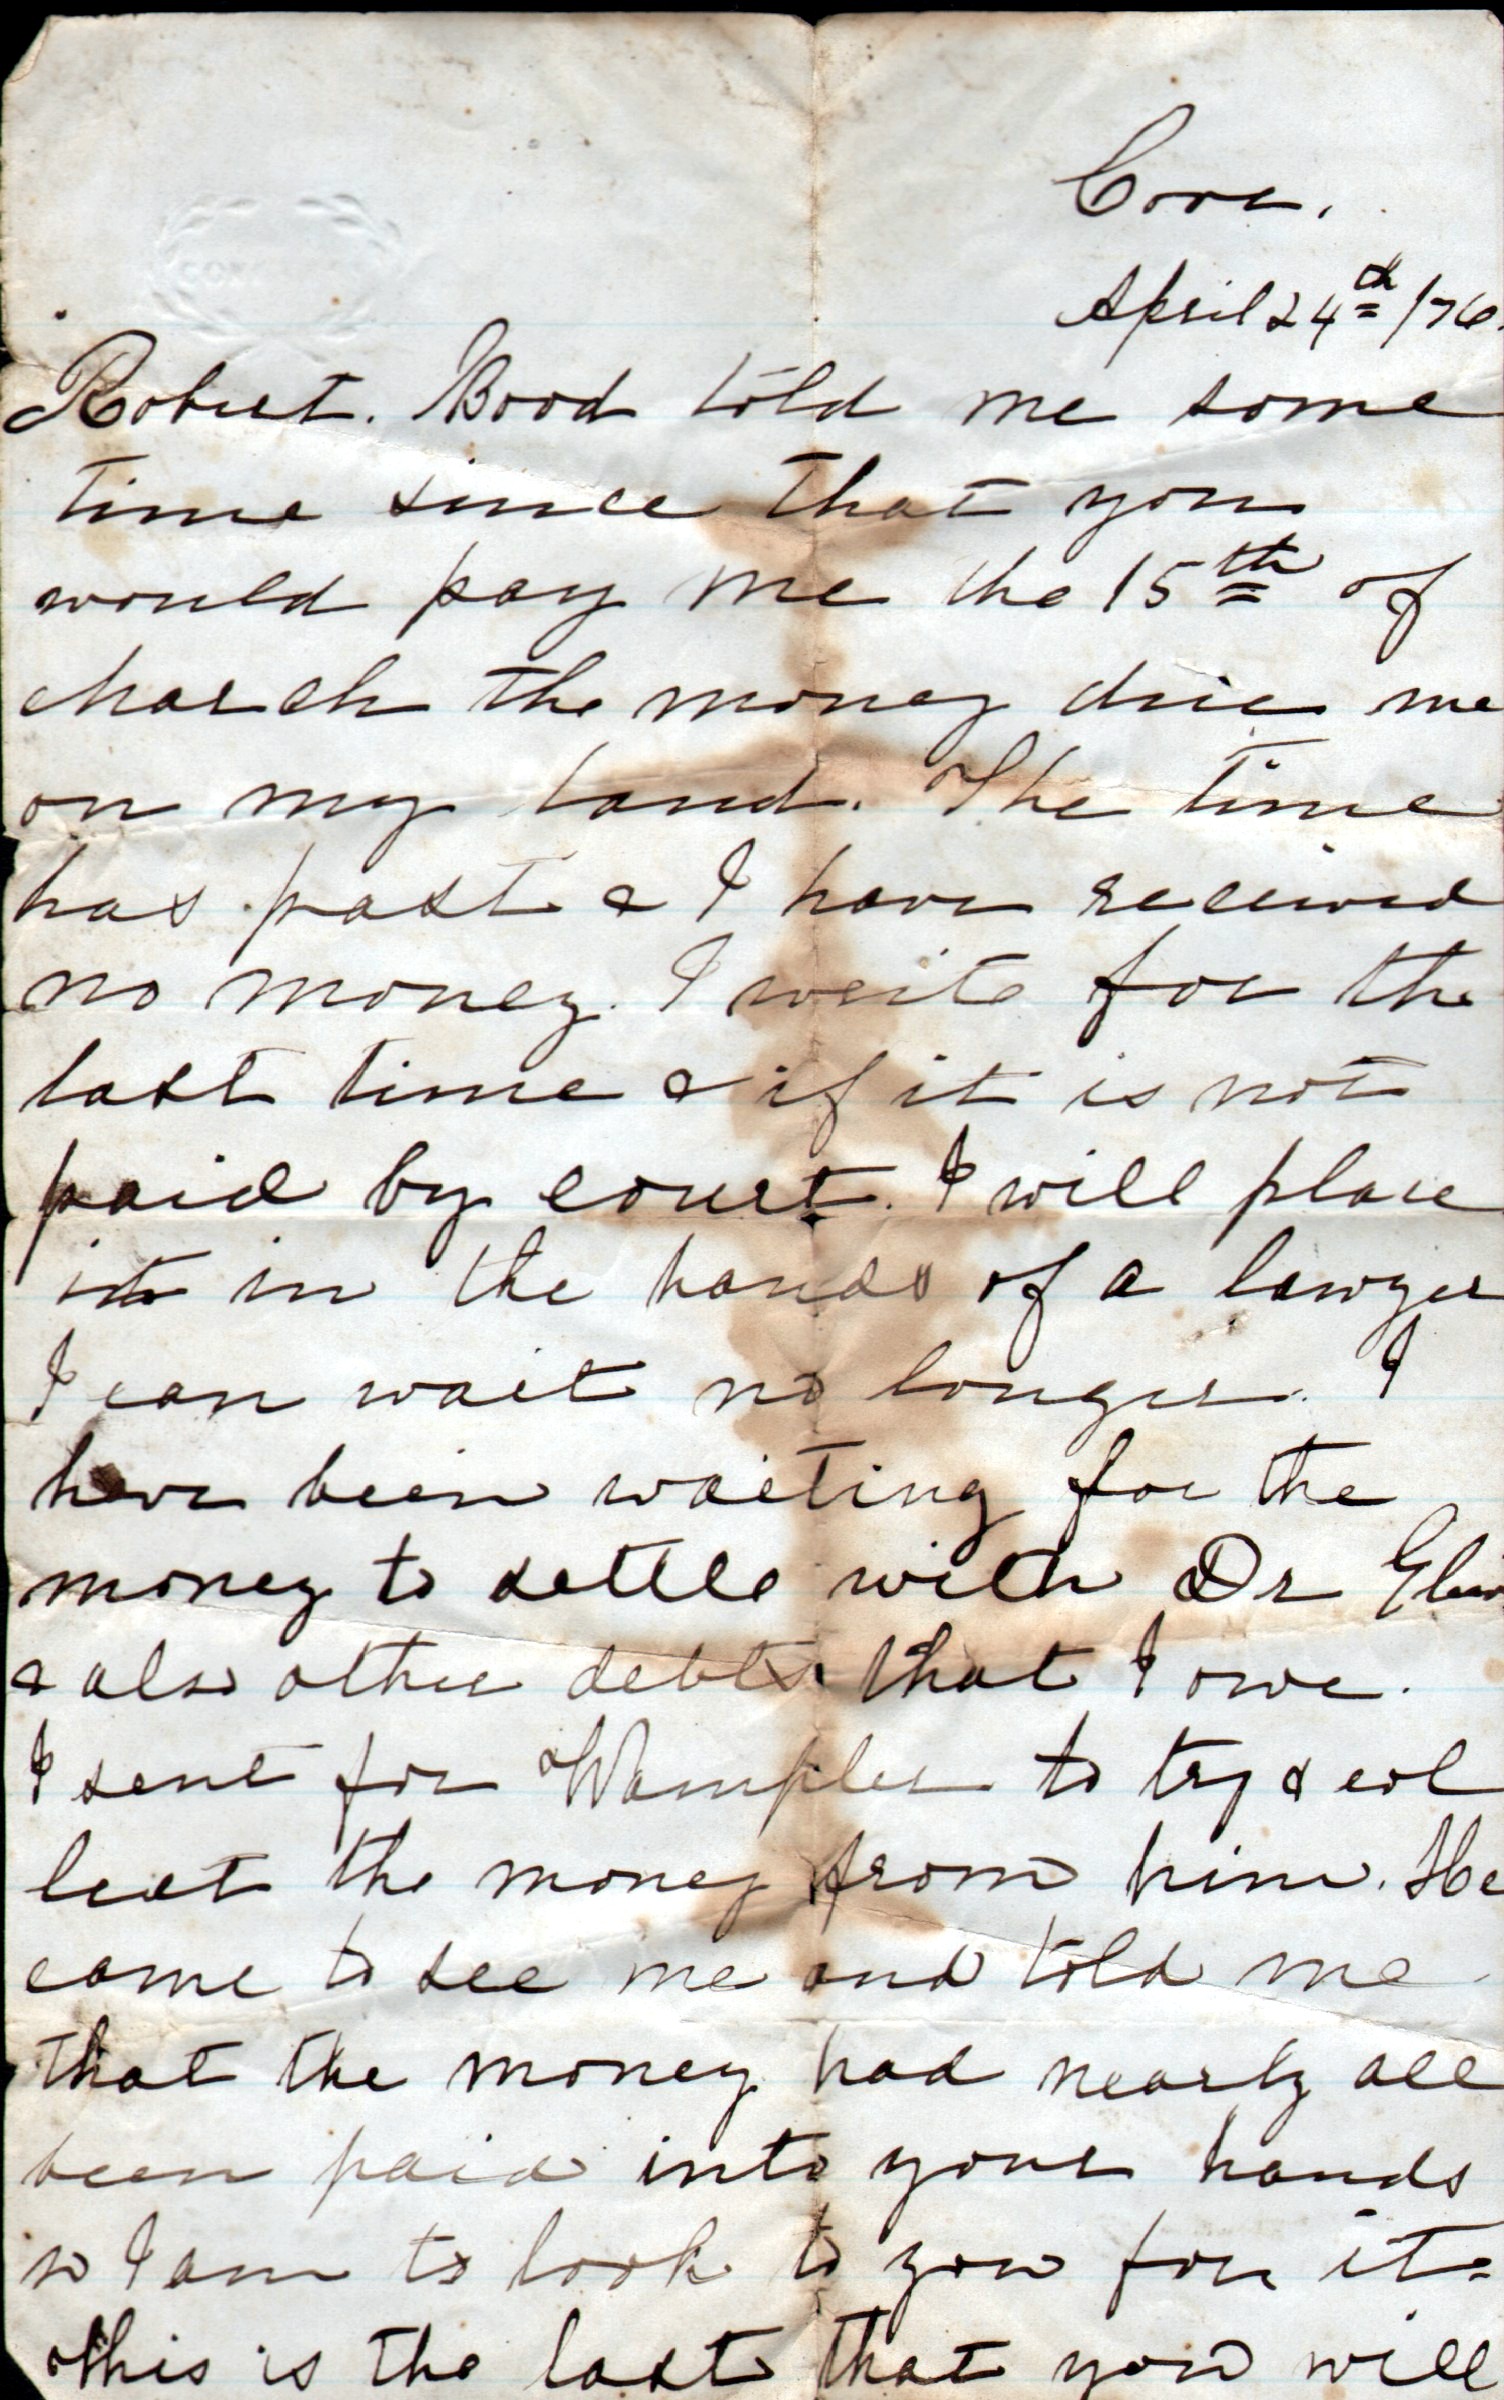 Cove.
April 24th /76.
Robert. Bood told me some
time since that you
would pay me the 15th of
March the money due me
on my land. The time
has past & I have received
no money. I write for the
last time & if it is not
paid by court. I will place
it in the hands of a lawyer
I can wait no longer. I
have been waiting for the
money to settle with Dr
& also other debts that I owe.
I sent for Wampler to try & col
lect the money from him. He
came to see me and told me
that the money had nearly all
been paid into your hands
so I am to look to you for it.
this is the last that you will